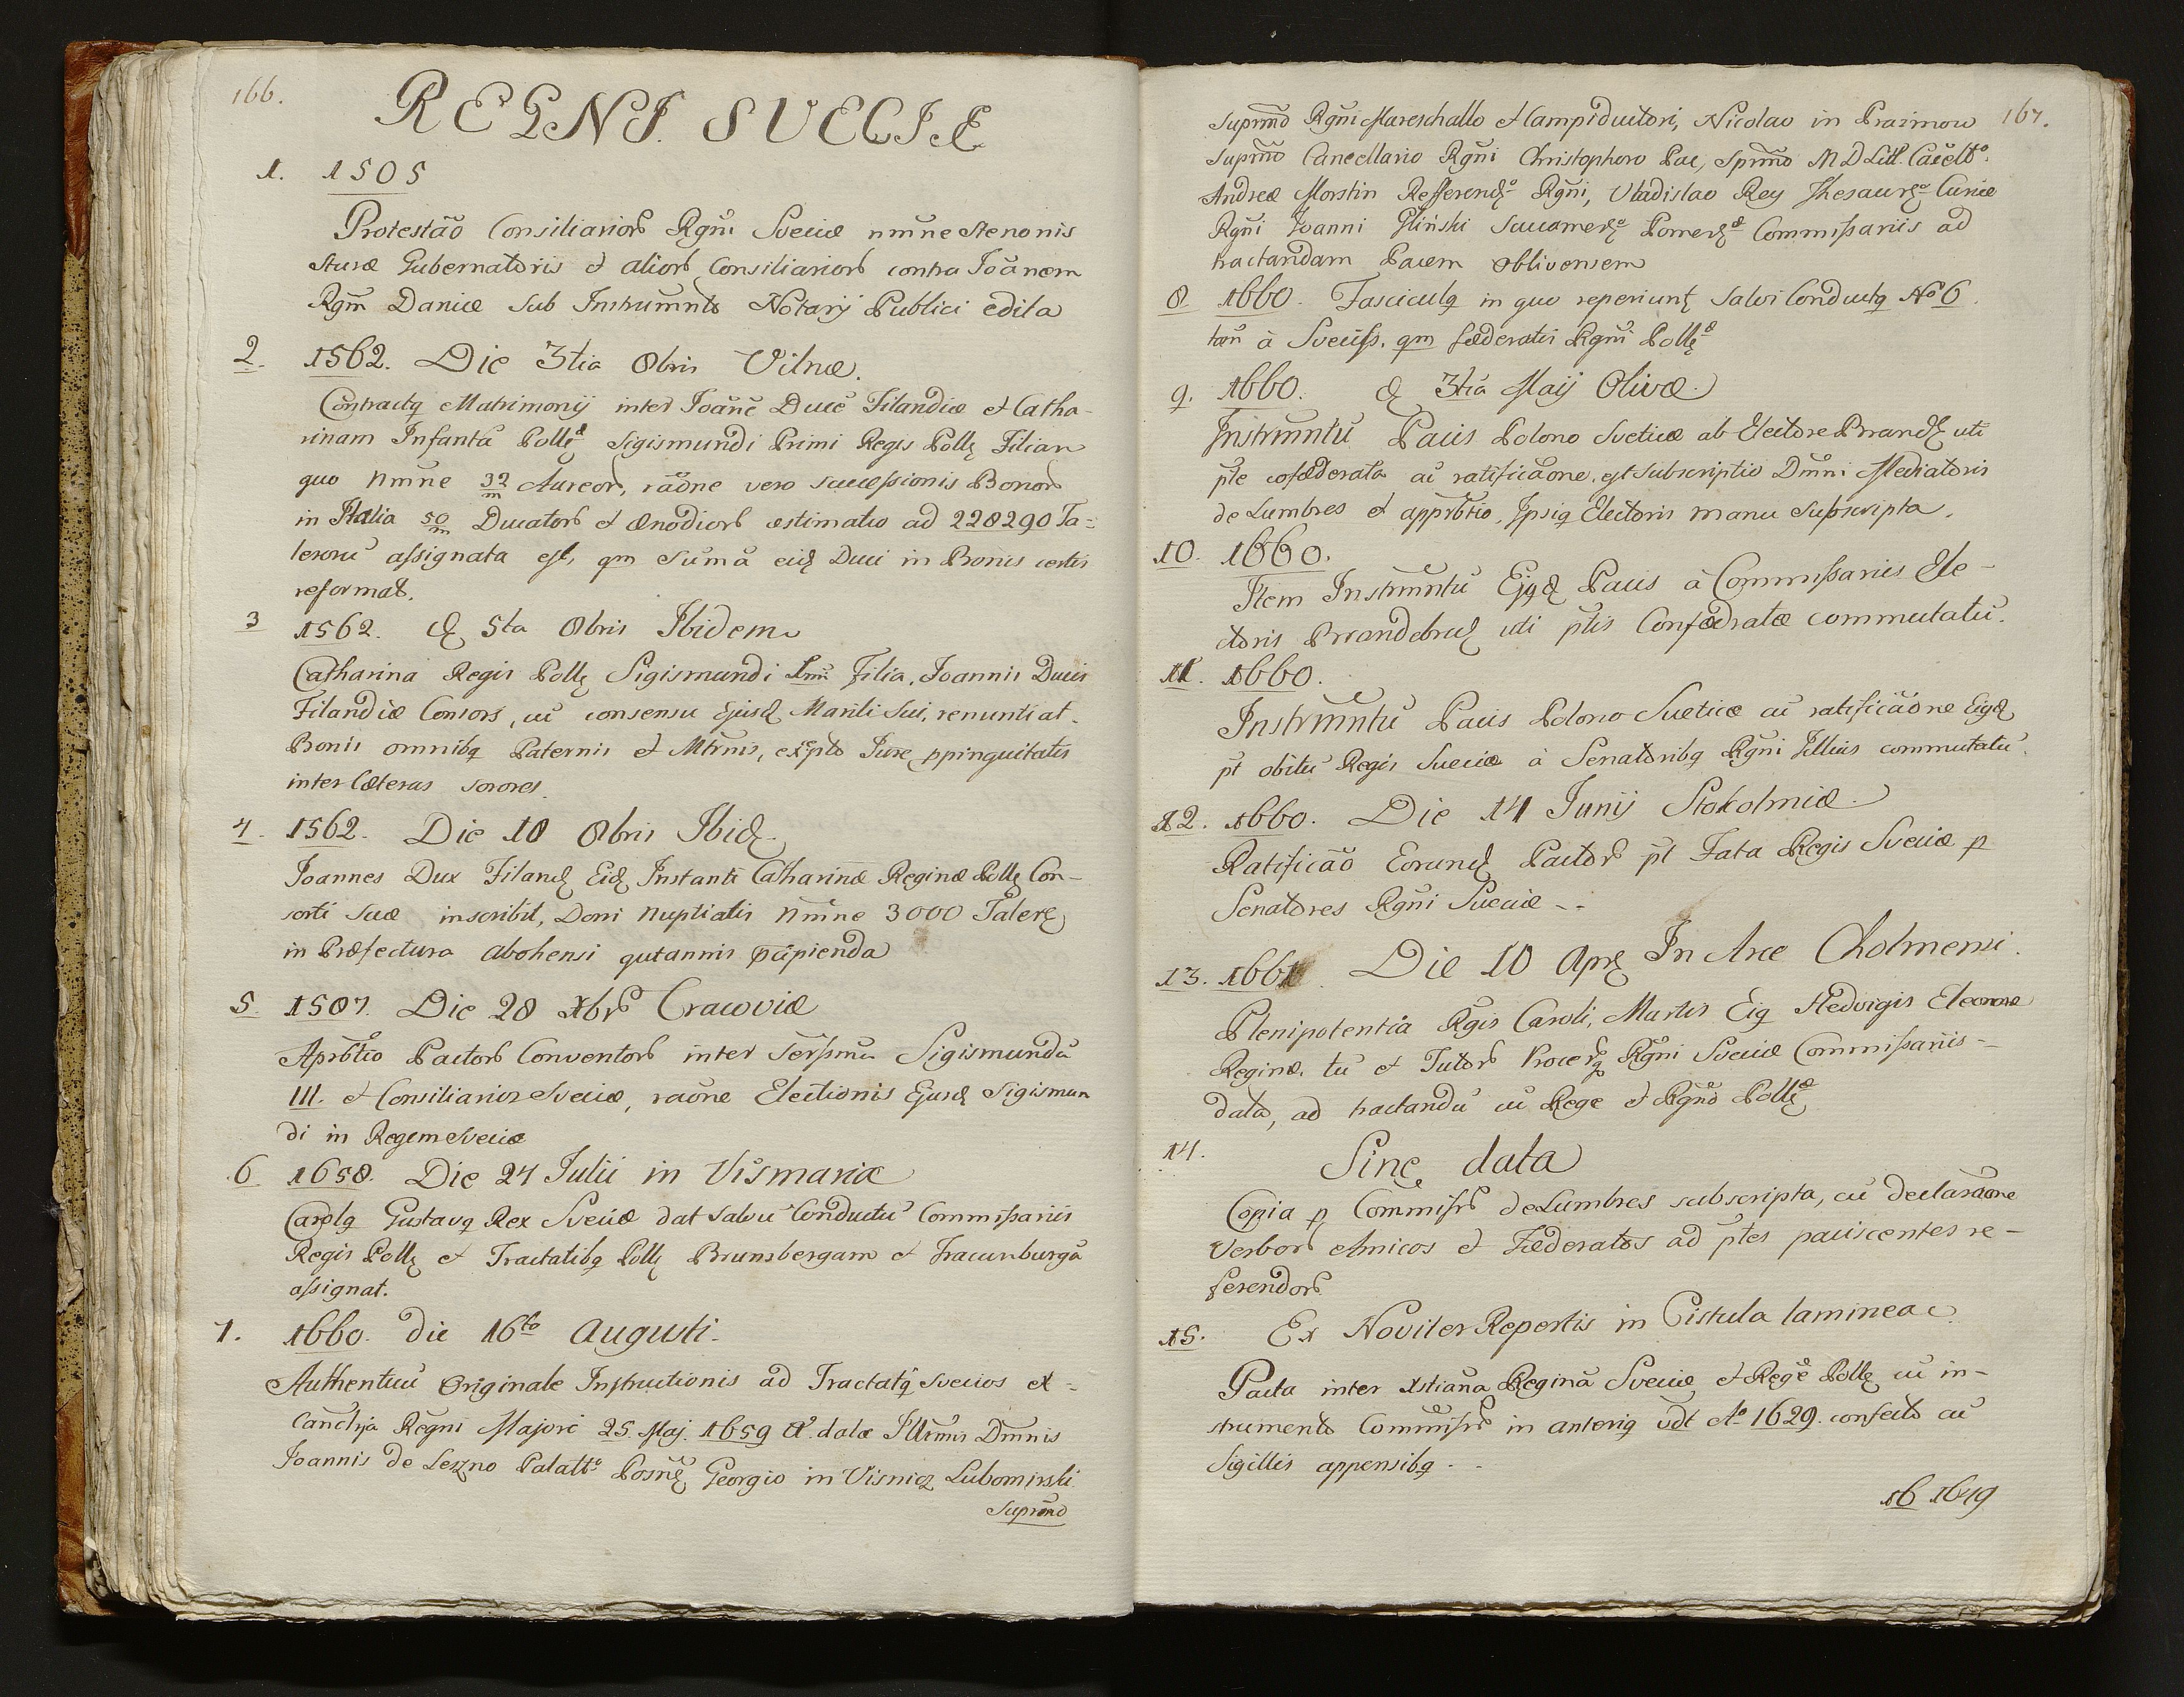 166.
REGNI SVECIÆ
1. 1505
Protestão Consiliarior Rgni Sveciæ nmne Stenonis
Sturæ Gubernatoris et alior Consiliarior contra Joãnem
Rgm Daniæ sub Instrumnto Notarij Publici edita
2. 1562. Die 3tia 8bris Vilnæ.
Contractq Matrimonij inter Joãne Duce Filandiæ et Catha-
rinam Infanta Pollę Sigismundi Primi Regis Pollę Filian
quo nmne 32/m Aureor, raone vero successionis Bonor
in Italia 50/m Ducator et ænodior æstimatio ad 228290 Ta=
leroru assignata est, qm Suma eid Duci in Bonis certis
reformat.
3 1562. d 5ta 8bris Ibidem
Catharina Regis Pollę Sigismundi Imi Filia, Joannis Ducis
Filandiæ Consors, cu consensu Ejusd Mariti Sui, renuntiat.
Bonis omnibq Paternis et Mtrnis, excpto Jure ppinguitatis
inter Cæteras sorores.
4. 1562. Die 10 8bris Ibid
Joannes Dux Filand Eid Instanti Catharinæ Reginæ Pollę Con-
sorti suæ inscribit, Doni nuptialis nmne 3000 Taler
in Præfectura Abohensi qutannis pcipienda
5. 1587. Die 28 Xbr Cracoviæ
Aprbtio Pactor Conventor inter Serssmu Sigismundu
III. et Consiliarios Sveciæ, raone Electionis Ejusd Sigismun
di in Regem Sveciæ
6 1658. Die 24 Julii in Vismaria
Carolq Gustavq Rex Sveciæ dat salvu Conductu Commissariis
Regis Pollę et Tractatibq Pollę Brunsbergam et Fraeunburga
assignat.
7. 1660. die 16to Augusti.
Authenticu Originale Instructionis ad Tractatq Svecios ex=
Canclrja Regni Majori 25. Maj. 1659 A. datæ Illrmis Dmnis
Joannis de Leszno Palatto Posnę Georgio in Visnicz Lubomirski
Suprmo
167.
Suprmo Rgni Mareschallo et Campiductori, Nicolao in Prazmow
Suprmo Cancellario Rgni Christophoro Pac, Sprmo M D Litt. Cacello.
Andreæ Morstin Refferendo Rgni, Vladislao Rey Thesauro Curiæ
Rgni Joanni Gliński Succamero Pomeræ Commissariis ad
tractandam Pacem Oblivensem
8. 1660. Fasciculq in quo reperiunt Salvi Conductq No 6.
tam à Sveciss. qm fæderatis Rgni Pollę
9. 1660. d 3tia Maij Olivæ.
Instrmntu Pacis Polono Sveticæ ab Electore Brand uti
pte cofæderata cu ratificaone, est subscriptio Dmni Mediatoris
de Lumbres et apprbtio, Ipsiq Electoris manu Subscripta.
10. 1660.
Item Instrmntu Ejqd Pacis à Commissariis Ele-
ctoris Brandebrud uti ptis Confædratæ commutatu.
11. 1660.
Instrmntu Pacis Polono Sveticæ cu ratificaone Eiqd
pt obitu Regis Sveciæ à Senatoribq Rgni Illius commutatu.
12. 1660. Die 14 Junij Stokolmiæ.
Ratificao Eorund Pactor pt Fata Regis Sveciæ p
Senatores Rgni Sveciæ - -
13. 1661. Die 10 Aprę In Arce Cholmensi.
Plenipotentia Rgis Caroli, Martis Eiq Hedvigis Eleonoræ
Reginæ, tu et Tutor Procerq Rgni Sveciæ Commissariis -
data, ad tractandu cu Rege et Rgno Pollę
14. Sine data
Copia p Commisr deLumbres subscripta, cu declaraone
verbor Amicos et Fæderatos ad ptes paciscentes re-
ferendor
15. Ex Noviter Repertis in Cistula laminea
Pacta inter Xstiana Regina Sveciæ et Rege Pollę cu in-
strumento Commisr in anteriq vdt Ao 1629. confecto cu
Sigillis appensibq. -
16 1649